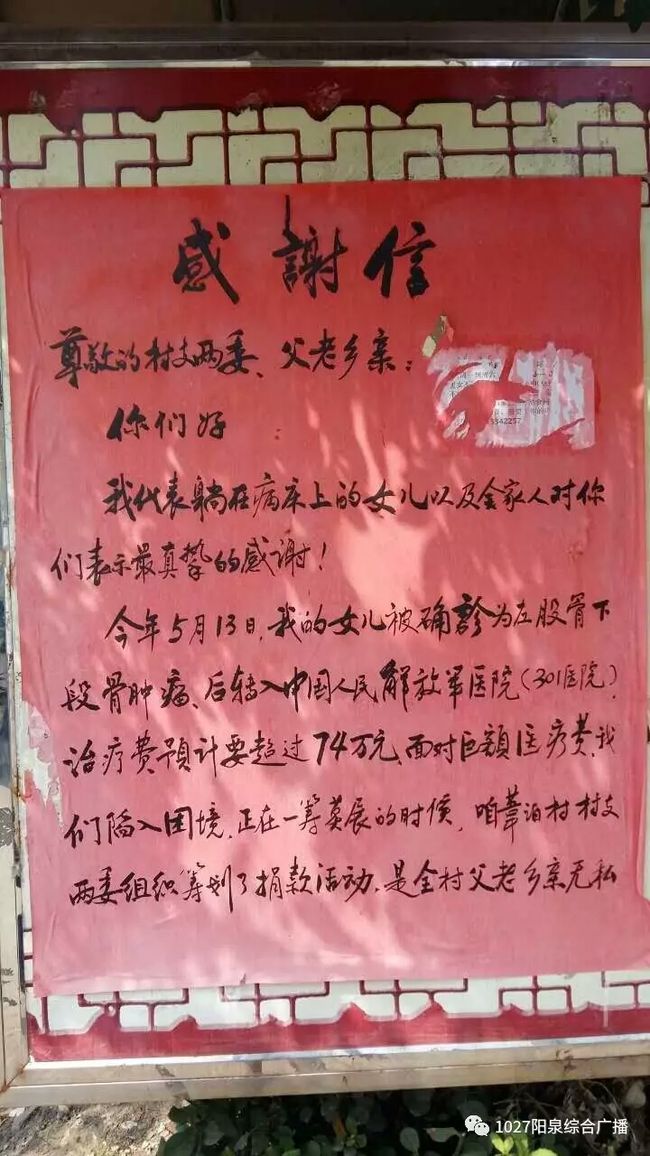 感謝信
尊敬的村支两委、父老乡亲：
你们好
我代表躺在病床上的女儿以及全家人对你
们表示最真挚的感谢！
今年5月13日,我的女儿被确診为左股骨下
段骨肿瘤、后转入中国人民解放军医院(301医院),
治疗费預计要超过74万元,面对巨額医疗费,我
们陷入困境,正在一筹莫展的时候,咱葦泊村村支
两委组织筹划了捐款活动,是全村父老乡亲无私
3342257
1027阳泉综合广播